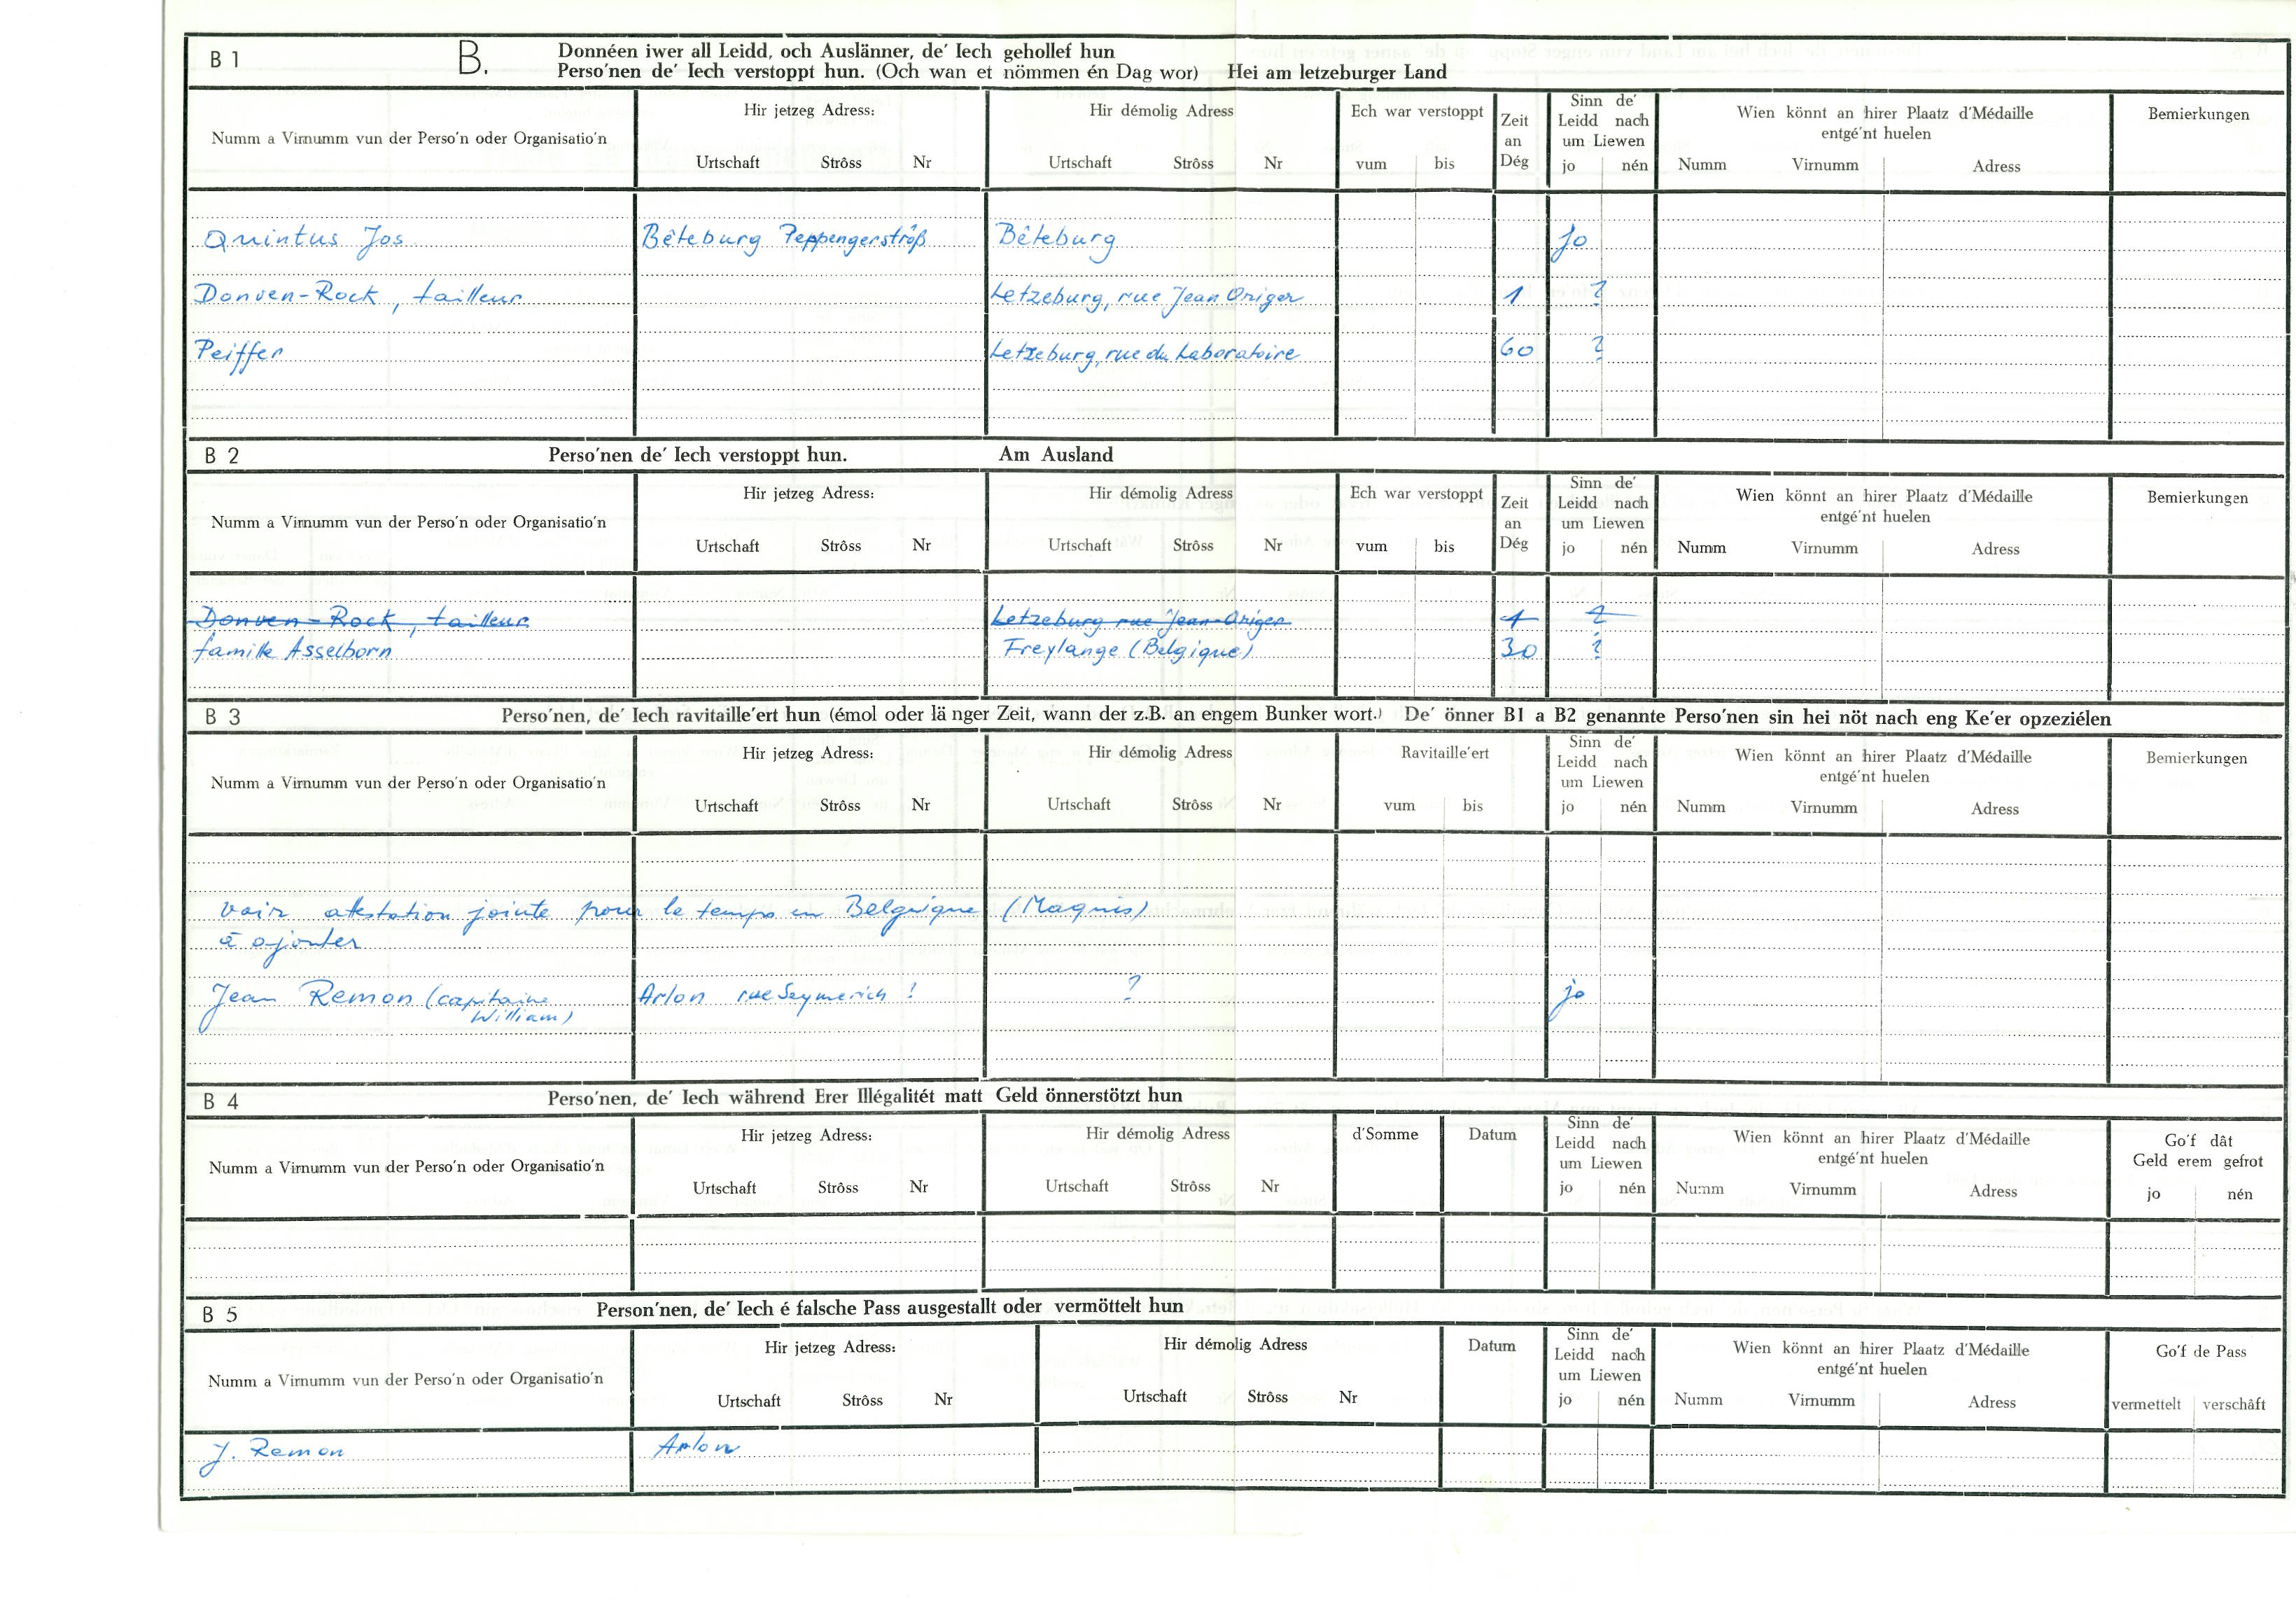 B 1
B.
Donnéen iwer all Leidd, och Auslänner, de’ Iech gehollef hun
Perso’nen de’ Iech verstoppt hun. (Och wan et nömmen én Dag wor) Hei am letzeburger Land
Numm a Virnumm vun der Perso’n oder Organisatio’n
Hir jetzeg Adress:
Urtschaft Strôss Nr
Hir démolig Adress
Urtschaft Strôss Nr
Ech war verstoppt
vum bis
Zeit
an
Dég
Sinn de’
Leidd nach
um Liewen
jo nén
Wien könnt an hirer Plaatz d’Médaille
entgé’nt huelen
Numm Virnumm Adress
Bemierkungen
Quintus Jos Bêteburg Peppengerströß Bêteburg jo
Donven-Rock, tailleur Letzeburg, rue Jean Origer 1 ?
Peiffer Letzeburg, rue du Laboratoire 60 ?
B 2
Perso’nen de’ Iech verstoppt hun. Am Ausland
Numm a Virnumm vun der Perso’n oder Organisatio’n
Hir jetzeg Adress:
Urtschaft Strôss Nr
Hir démolig Adress
Urtschaft Strôss Nr
Ech war verstoppt
vum bis
Zeit
an
Dég
Sinn de’
Leidd nach
um Liewen
jo nén
Wien könnt an hirer Plaatz d’Médaille
entgé’nt huelen
Numm Virnumm Adress
Bemierkungen
Donven-Rock, tailleur Letzeburg rue Jean-Origer 1 ?
famille Asselborn Freylange (Belgique) 30 ?
B 3
Perso’nen, de’ Iech ravitaille’ert hun (émol oder lä nger Zeit, wann der z.B. an engem Bunker wort.) De’ önner B1 a B2 genannte Perso’nen sin hei nöt nach eng Ke’er opzeziélen
Numm a Virnumm vun der Perso’n oder Organisatio’n
Hir jetzeg Adress:
Urtschaft Strôss Nr
Hir démolig Adress
Urtschaft Strôss Nr
Ravitaille’ert
vum bis
Sinn de’
Leidd nach
um Liewen
jo nén
Wien könnt an hirer Plaatz d’Médaille
entgé’nt huelen
Numm Virnumm Adress
Bemierkungen
voir attestation jointe pour le temps en Belgique (Maquis)
à ajouter
Jean Remon (capitaine Arlon rue Seymerich ! ? jo
William)
B 4
Perso’nen, de’ Iech während Erer Illégalitét matt Geld önnerstötzt hun
Numm a Virnumm vun der Perso’n oder Organisatio’n
Hir jetzeg Adress:
Urtschaft Strôss Nr
Hir démolig Adress
Urtschaft Strôss Nr
d’Somme
Datum
Sinn de’
Leidd nach
um Liewen
jo nén
Wien könnt an hirer Plaatz d’Médaille
entgé’nt huelen
Numm Virnumm Adress
Go’f dât
Geld erem gefrot
jo nén
B 5
Person’nen, de’ Iech é falsche Pass ausgestallt oder vermöttelt hun
Numm a Virnumm vun der Perso’n oder Organisatio’n
Hir jetzeg Adress:
Urtschaft Strôss Nr
Hir démolig Adress
Urtschaft Strôss Nr
Datum
Sinn de’
Leidd nach
um Liewen
jo nén
Wien könnt an hirer Plaatz d’Médaille
entgé’nt huelen
Numm Virnumm Adress
Go’f de Pass
vermettelt verschâft
J. Remon Arlon